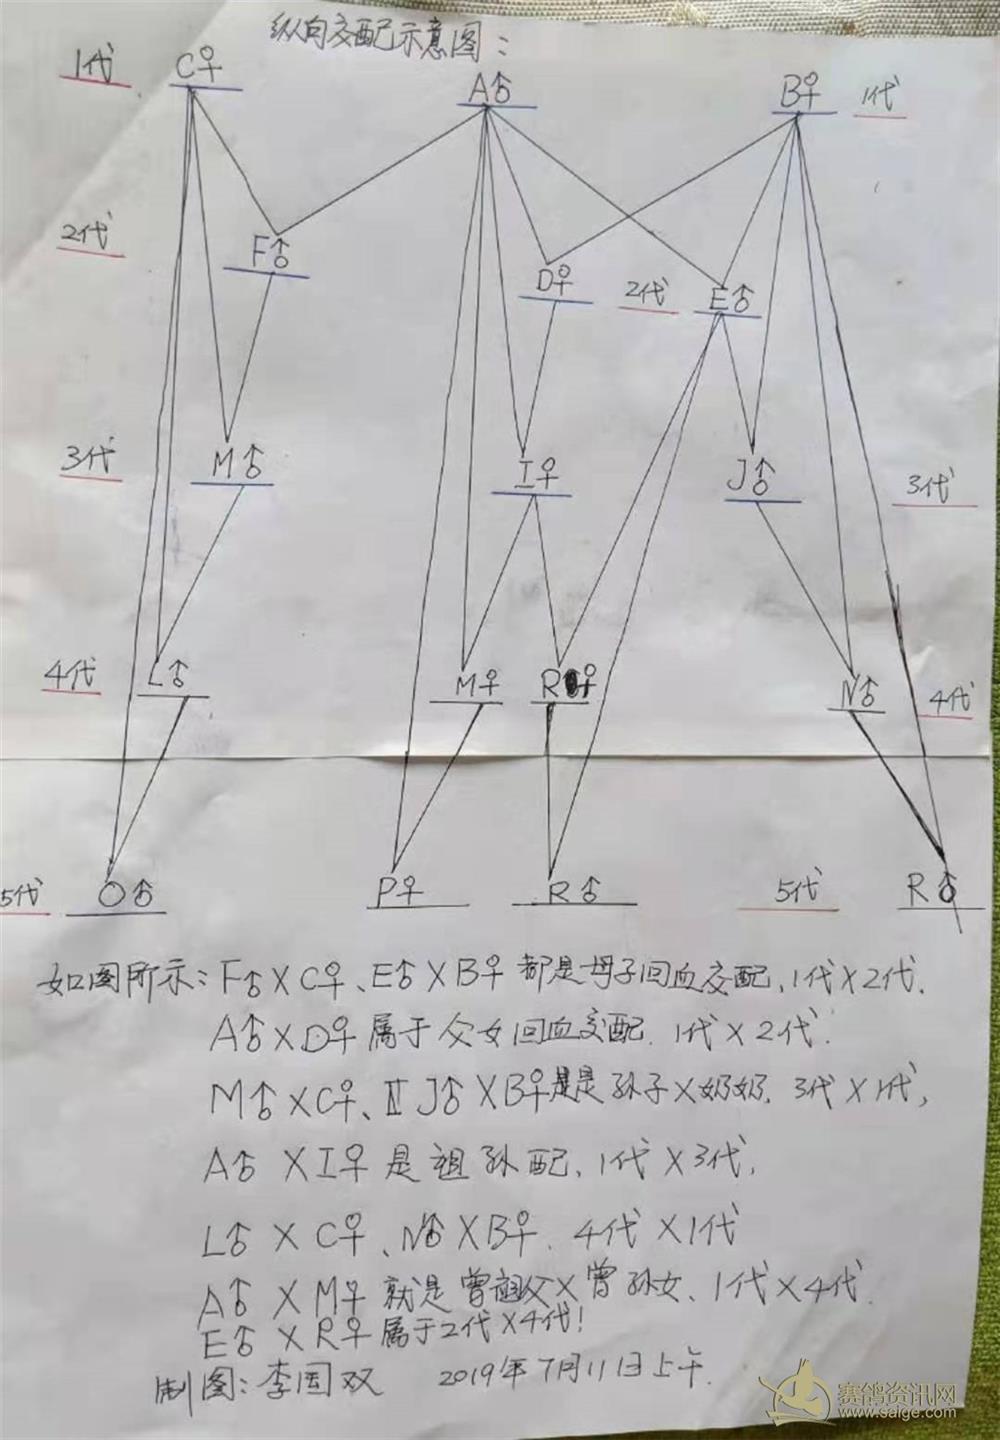 纵向交配示意图：
1代 C♀ A♂ B♀ 1代
2代 F♂ D♀ 2代 E♂
3代 M♂ I♀ J♂ 3代
4代 L♂ M♀ R♀ N♂ 4代
5代 O♂ P♀ R♂ 5代 R♂
如图所示：F♂×C♀、E♂×B♀都是母子回血交配，1代×2代.
A♂×D♀属于父女回血交配.1代×2代.
M♂×C♀、J♂×B♀是是孙子×奶奶.3代×1代，
A♂×I♀是祖孙配、1代×3代，
L♂×C♀、N♂×B♀.4代×1代
A♂×M♀就是曾祖父×曾孙女、1代×4代.
E♂×R♀属于2代×4代！
制图：李国双 2019年7月11日上午.
赛鸽资讯网
www.saige.com